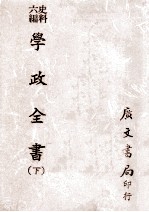 史料
六編
學政全書
(下)
廣文書局
印行